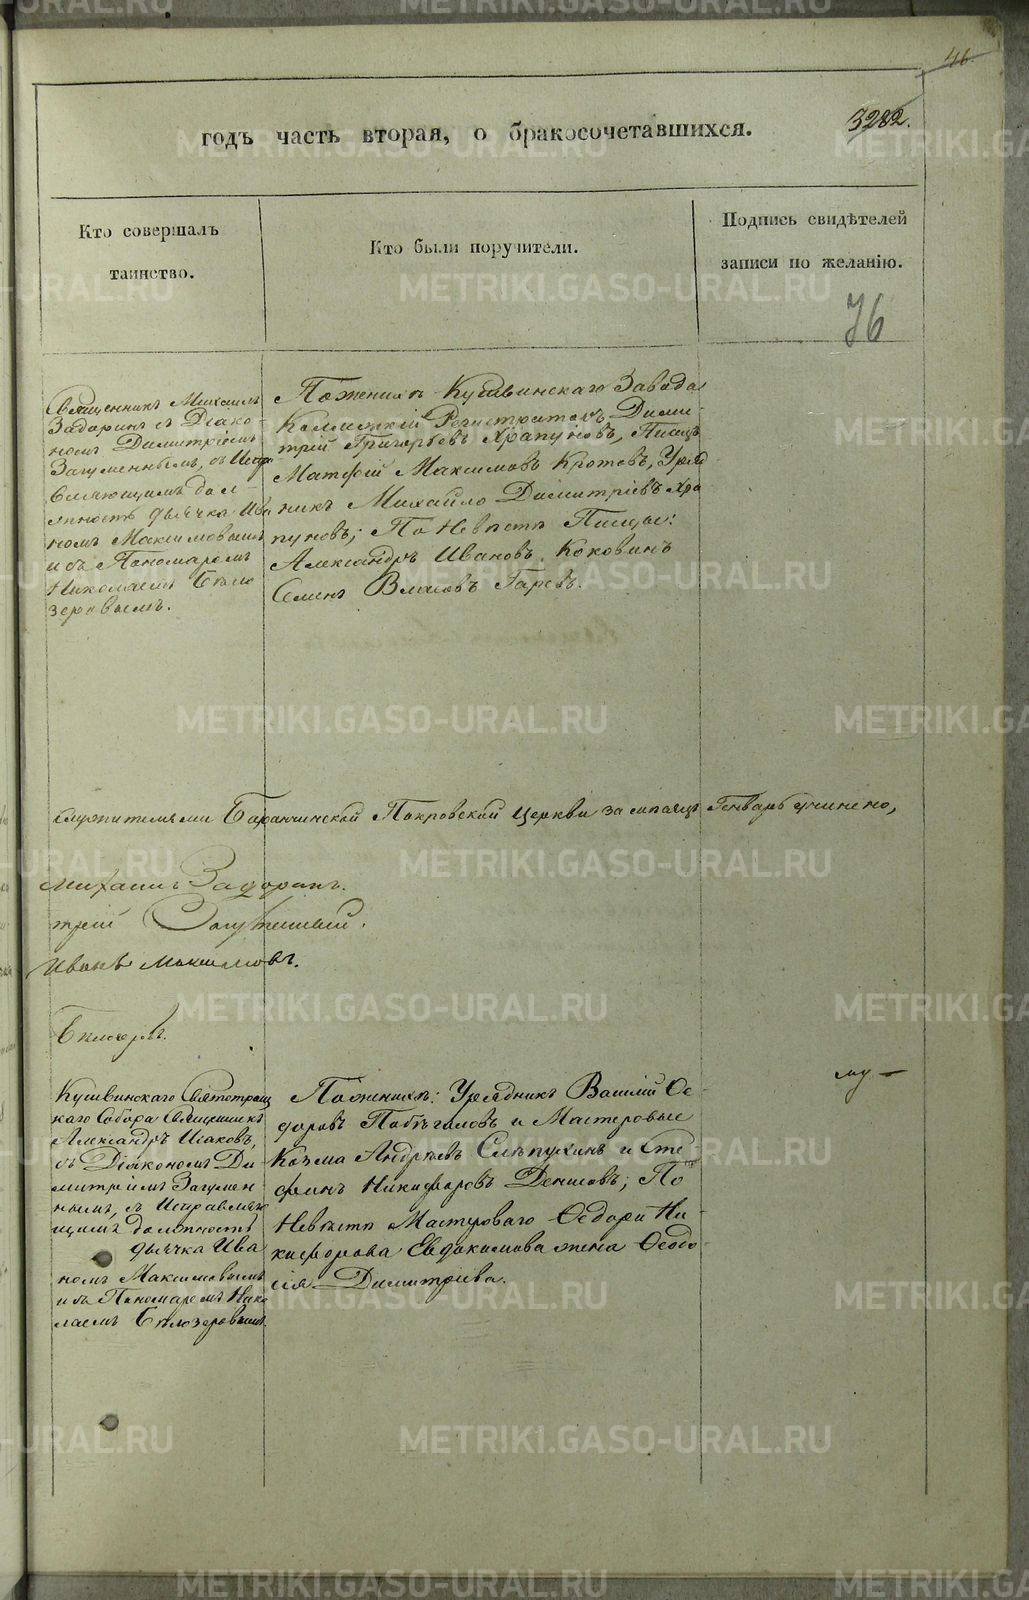 46.
3282.
годъ часть вторая, о бракосочетавшихся.
Кто совершалъ
таинство.
Кто были поручители.
Подпись свидѣтелей
записи по желанію.
76
Священникъ Михаилъ
Задоринъ съ Діако-
номъ Димитріемъ
Загуменнымъ, съ Испра
вляющимъ дол-
жность дьячка Ива
номъ Максимовымъ
и съ Пономаремъ
Николаемъ Бѣло
зеровымъ.
По женихѣ Кушвинскаго Завода
Коллежскій Регистраторъ Дими-
трій Григорьевъ Храпуновъ, Писецъ
Матфій Максимовъ Кротовъ, Уряд
никъ Михайло Димитріевъ Хра
пуновъ; По Невѣстѣ Писцы:
Александръ Ивановъ Коковинъ
Семенъ Власовъ Гаревъ.
служителями Баранчинской Покровской церкви за мѣсяцъ Генварь учинено,
Михаилъ Задоринъ.
трій Загуменный.
Иванъ Максимовъ.
Бѣлозеровъ.
Кушвинскаго Святотроиц
каго Собора Священникъ
Александръ Исаковъ,
съ Діакономъ Ди
митріемъ Загумен
нымъ, съ Исправляю
щимъ должность
дьячка Ива
номъ Максимовымъ
и съ Пономаремъ Нико
лаемъ Бѣлозеровымъ.
По женихѣ: Урядникъ Василій Ѳе-
доровъ Побѣгаловъ и Мастеровые
Козма Андреевъ Слѣпухинъ и Сте
фанъ Никифоровъ Денисовъ; По
Невѣстѣ Мастероваго Ѳедора Ни-
кифорова Евдокимова жена Ѳеодо
сія Димитріева.
му —